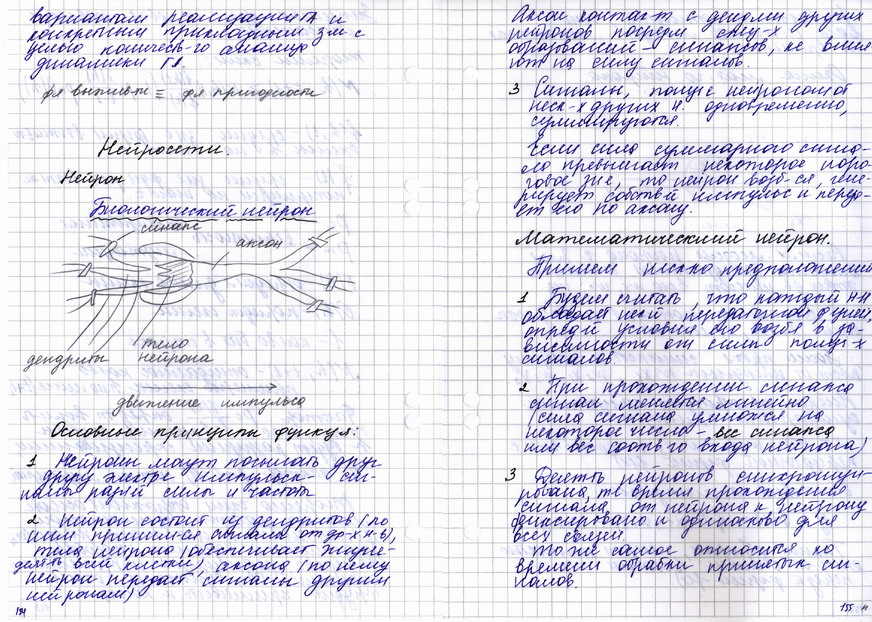 вариантам реализации ГА и
конкретным прикладным з-м с
целью количеств-го анализа
динамики ГА.
ф-я выжив-ти ≡ ф-я пригодности
Нейросети.
Нейрон
Биологический нейрон
синапс
аксон
дендриты
тело
нейрона
движение импульса
Основные принципы функц-я:
1 Нейроны могут посылать друг
другу электр импульсн- сиг-
налы разл силы и частоты
2 Нейрон состоит из дендритов (по
ним приним-ся сигналы от др-х н-в),
тела нейрона (обеспечивает
всей клетки), аксона (по нему
нейрон передаёт сигналы другим
нейронам)
194
Аксон контак-т с денд-ми других
нейронов посредм спец-х
образований - синапсов, к- влия
ют на силу сигналов.
3 Сигналы, получ-е нейроном от
неск-х других н. одновременно,
суммируются.
Если сила суммарного сигна-
ла превышает некоторое поро-
говое зн-е, то нейрон возб-ся, гене-
рирует собств-й импульс и переда-
ёт его по аксону.
Математический нейрон.
Примем неск-ко предположений
1 Будем считать, что каждый н-н
обладает нек-й передаточной функц-ей,
опред-й условия его возб-я в за-
висимости от силы получ-х
сигналов
2 При прохождении синапса
сигнал меняется линейно
(сила сигнала умнож-ся на
некоторое число - вес синапса
или вес соотв-го входа нейрона)
3 Деят-ть нейронов синхрони-
рована, т.е. время прохождения
сигнала от нейрона к нейрону
фиксировано и одинаково для
всех связей.
то же самое относится ко
времени обраб-ки принятых сиг-
налов.
195